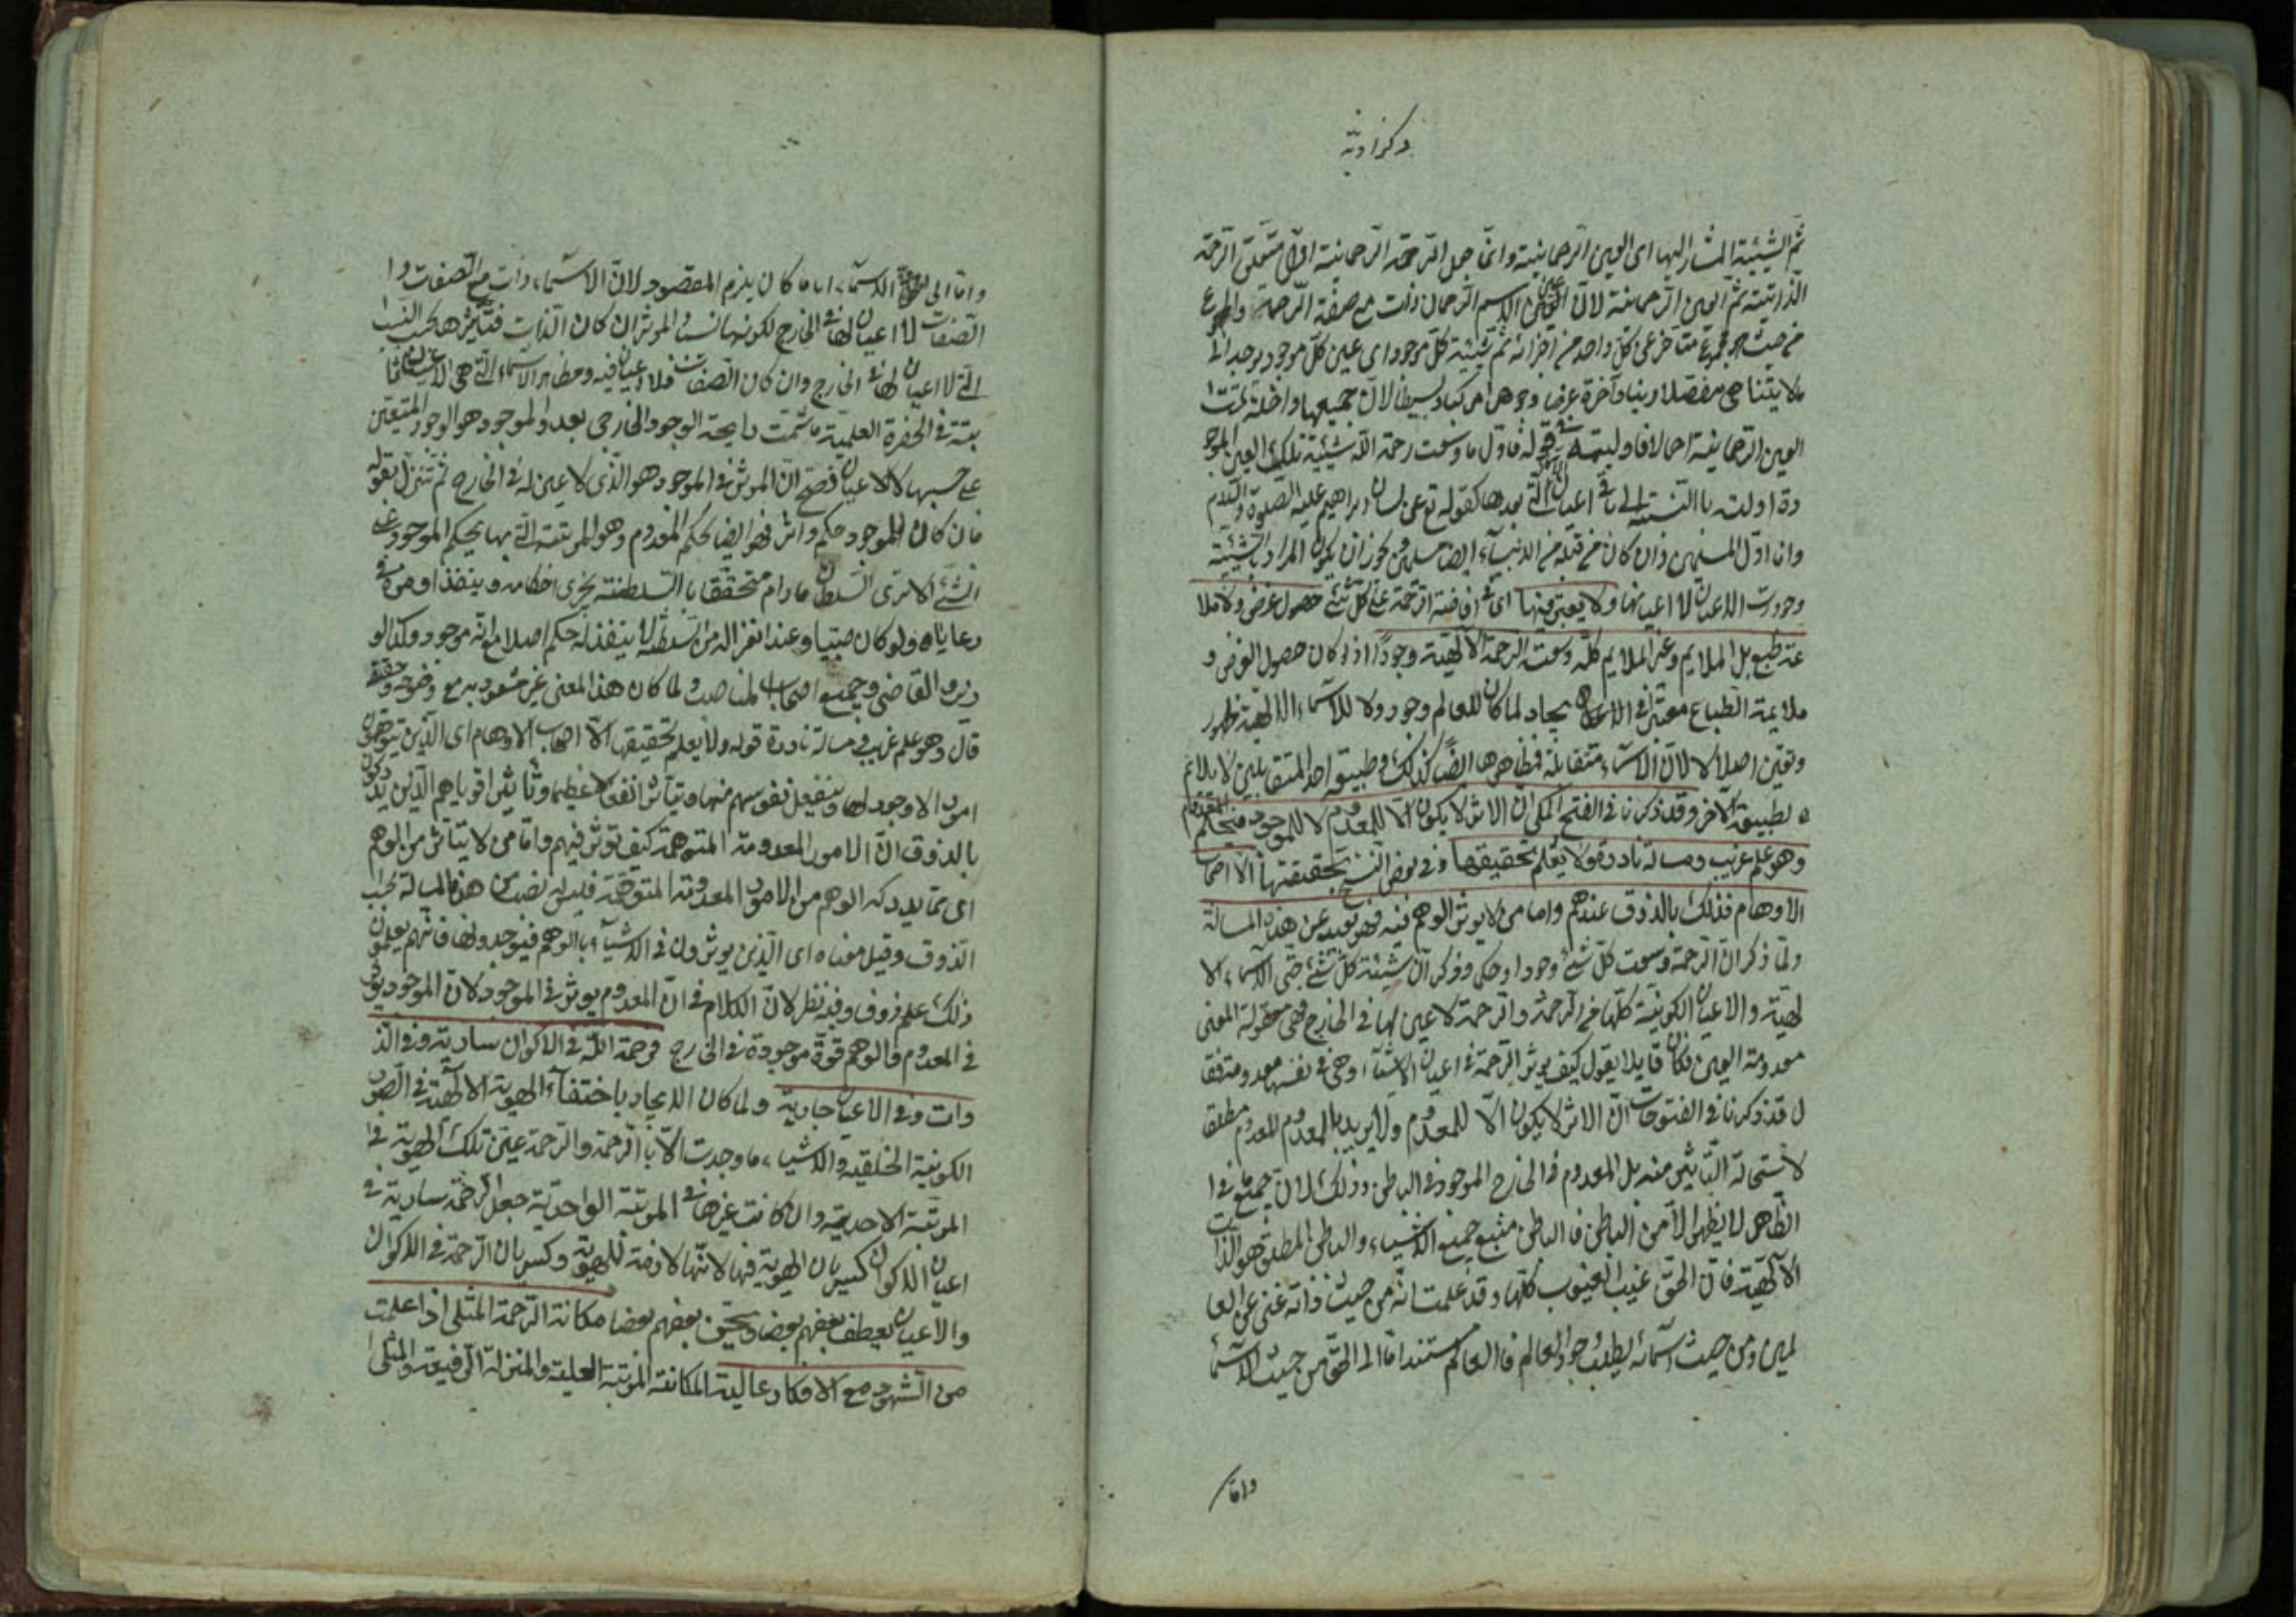 ثم الشيئية المشار اليها اى العين الرحمانية وانما جعل الرحمة الرحمانية اول متعلق الرحمة
الذاتية ثم العين الرحمانية لان الاسم الرحمان ذات مع صفة الرحمة والمجموع
من حيث هو مجموع متأخر عن كل واحد من اجزائه ثم شيئية كل موجود اى عين كل موجود يوجد الى
ما لا يتناهى مفصلا دنيا وآخرة عرضا وجوهرا مركبا وبسيطا لان جميعها داخلة تحت
العين الرحمانية اجمالا فاولية قوله فاول ما وسعت رحمة الله شيئية تلك العين الموجو
دة اولية بالنسبة الى باقى اعيان الاسماء التى بعدها كقوله تع عن لسان ابراهيم عليه الصلوة والسلام
وانا اول المسلمين وان كان من قبله من الانبياء ايضا مسلمين ويجوز ان يكون المراد بالشيئية
وجودات الاعيان لا اعيانها ولا يعتبر فيها اى فى افاضة الرحمة على كل شئ حصول غرض ولا ملا
ئمة طبع بل الملايم وغير الملايم كله وسعته الرحمة الالهية وجودا اذ لو كان حصول الغرض و
ملايمة الطباع معتبرا فى الايجاد لما كان للعالم وجود ولا للاسماء الالهية ظهور
وتعين اصلا لان الاسماء متقابلة فمظاهرها ايضا كذلك وطبيعة احد المتقابلين لا يلائم
لطبيعة الاخر وقد ذكرنا فى الفتح المكى ان الاثر لا يكون الا للمعدوم لا للموجود
وهو علم غريب ومسالة نادرة ولا يعلم تحقيقها وفى بعض النسخ بحقيقتها الا اصحاب
الاوهام فذلك بالذوق عندهم واما من لا يوثر الوهم فيه فهو بعيد عن هذه المسالة
ولما ذكر ان الرحمة وسعت كل شئ وجودا وحكما وذكر ان شيئية كل شئ حتى الاسماء الا
لهية والاعيان الكونية كلها من الرحمة والرحمة لا عين لها فى الخارج فهى معقولة المعنى
معدومة العين فكان قايلا يقول كيف يوثر الرحمة فى اعيان الاشياء وهى فى نفسها معدومة فقا
ل قد ذكرنا فى الفتوحات ان الاثر لا يكون الا للمعدوم ولا يريد بالمعدوم المعدوم مطلقا
لاستحالة التاثير منه بل المعدوم فى الخارج الموجود فى الباطن وذلك لان جميع ما فى ا
لظاهر لا يظهر الا من الباطن فالباطن منبع جميع الاشياء والباطن المطلق هو الذات
الالهية فان الحق غيب الغيوب كلها وقد علمت انه من حيث ذاته غنى عن العا
لمين ومن حيث اسمائه يطلب وجود العالم فالعالم مستند اما الى الحق من حيث الاسما
واما
واما الى الاسماء اياما كان يلزم المقصود لان الاسماء ذات مع الصفات وا
لصفات لا اعيان لها فى الخارج لكونها نسبا والموثر ان كان الذات فتأثيرها بحسب النسب
التى لا اعيان لها فى الخارج وان كان الصفات فلا اعيان فيه ومظاهر الاسماء التى هى الاعيان الثا
بتة فى الحضرة العلمية ما شمت رايحة الوجود الخارجى بعد والموجود هو الوجود المتعين
على حسبها لا الاعيان فصح ان الموثر فى الموجود هو الذى لا عين له فى الخارج ثم تنزل بقوله
فان كان للموجود حكم واثر فهو ايضا بحكم المعدوم وهو المرتبة التى بها يحكم الموجود على
الشئ الا ترى السلطان ما دام متحققا بالسلطنة يجرى احكامه وينفذ اوامره فى
رعاياه ولو كان صبيا وعند انعزاله من السلطنة لا ينفذ له حكم اصلا مع انه موجود وكذا الو
زير والقاضى وجميع اصحاب المناصب ولما كان هذا المعنى غير مشعور به مع وضوحه وحقيقته
قال وهو علم غريب ومسالة نادرة قوله ولا يعلم تحقيقها الا اصحاب الاوهام اى الذين يتوهمون
امورا لا وجود لها وينفعل نفوسهم منها ويتأثر انفعالا عظيما وتأثيرا قويا هم الذين يدركون
بالذوق ان الامور المعدومة المتوهمة كيف توثر فيهم واما من لا يتأثر من الوهم
اى مما يدركه الوهم من الامور المعدومة المتوهمة فليس له نصيب من هذه المسالة بحسب
الذوق وقيل معناه اى الذين يوثرون فى الاشياء بالوهم فيوجدونها فانهم يعلمون
ذلك علم ذوق وفيه نظر لان الكلام فى ان المعدوم يوثر فى الموجود لا ان الموجود يوثر
فى المعدوم فالوهم قوة موجودة فى الخارج فرحمة الله فى الاكوان سارية وفى الذ
وات وفى الاعيان جارية ولما كان الايجاد باختفاء الهوية الالهية فى الصور
الكونية الخلقية والاشياء ما وجدت الا بالرحمة والرحمة عين تلك الهوية فى
المرتبة الاحدية وان كانت غيرها فى المرتبة الواحدية جعل الرحمة سارية فى
اعيان الاكوان كسريان الهوية فيها لانها لازمة للهوية وكسريان الرحمة فى الاكوان
والاعيان يعطف بعضهم بعضا ويحن بعضهم بعضا مكانة الرحمة المثلى اذا علمت
من الشهود مع الافكار عالية المكانة المرتبة العلية والمنزلة الرفيعة والمثلى